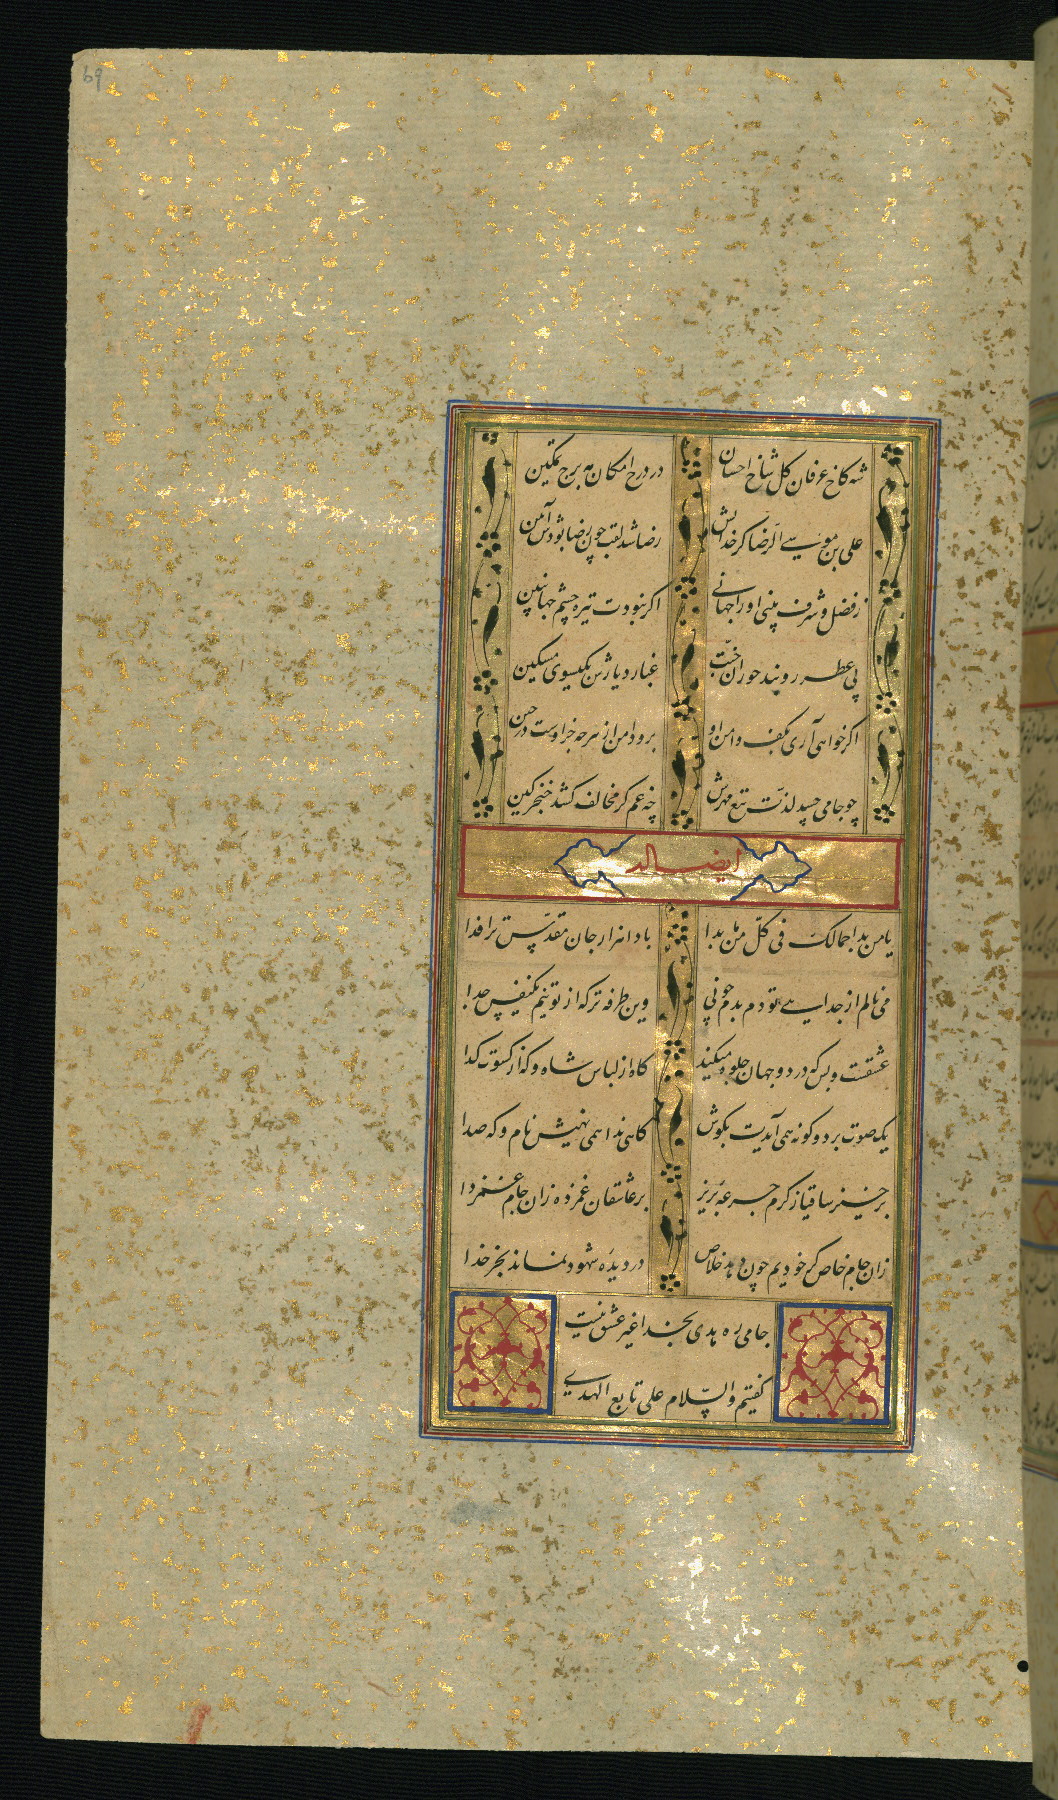 69
شه کاخ عرفان کل شاخ احسان
در درج امکان مه برج تمکین
علی بن موسی الرضا کز خدایش
رضا شد لقب چون رضا بودش آیین
ز فضل و شرف بینی او را جهانی
اکر نبودت تیره چشم جهان بین
پی عطر روبند حوران جنت
غبار دیارش بکیسوی مشکین
اکر خواهی آری بکف دامن او
برو دامن از هرچه جز اوست درچین
چو جامی چشد لذت تیغ مهرش
چه غم کر مخالف کشد خنجر کین
ایضا له
یا من بدا جمالک فی کل ما بدا
بادا هزار جان مقدس ترا فدا
می نالم از جدایی تو دم بدم چو نی
وین طرفه تر که از تو نیم یکنفس جدا
عشقست و بس که در دو جهان جلوه میکند
کاه از لباس شاه و که از کسوت کدا
یک صوت بر دو کونه همی آیدت بکوش
کاهی ندا همی نهیش نام و که صدا
برخیز ساقیا ز کرم جرعه بریز
بر عاشقان غمزده زان جام غمزدا
زان جام خاص کز خودیم چون دهد خلاص
در دیده شهود نماند بجز خدا
جامی ره هدی بخدا غیر عشق نیست
کفتیم والسلام علی تابع الهدی